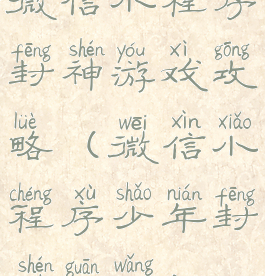 微信小程序
fēng shén yóu xì gōng
封神游戏攻
lüè wēi xìn xiǎo
略（微信小
chéng xù shǎo nián fēng
程序少年封
shén guān wǎng